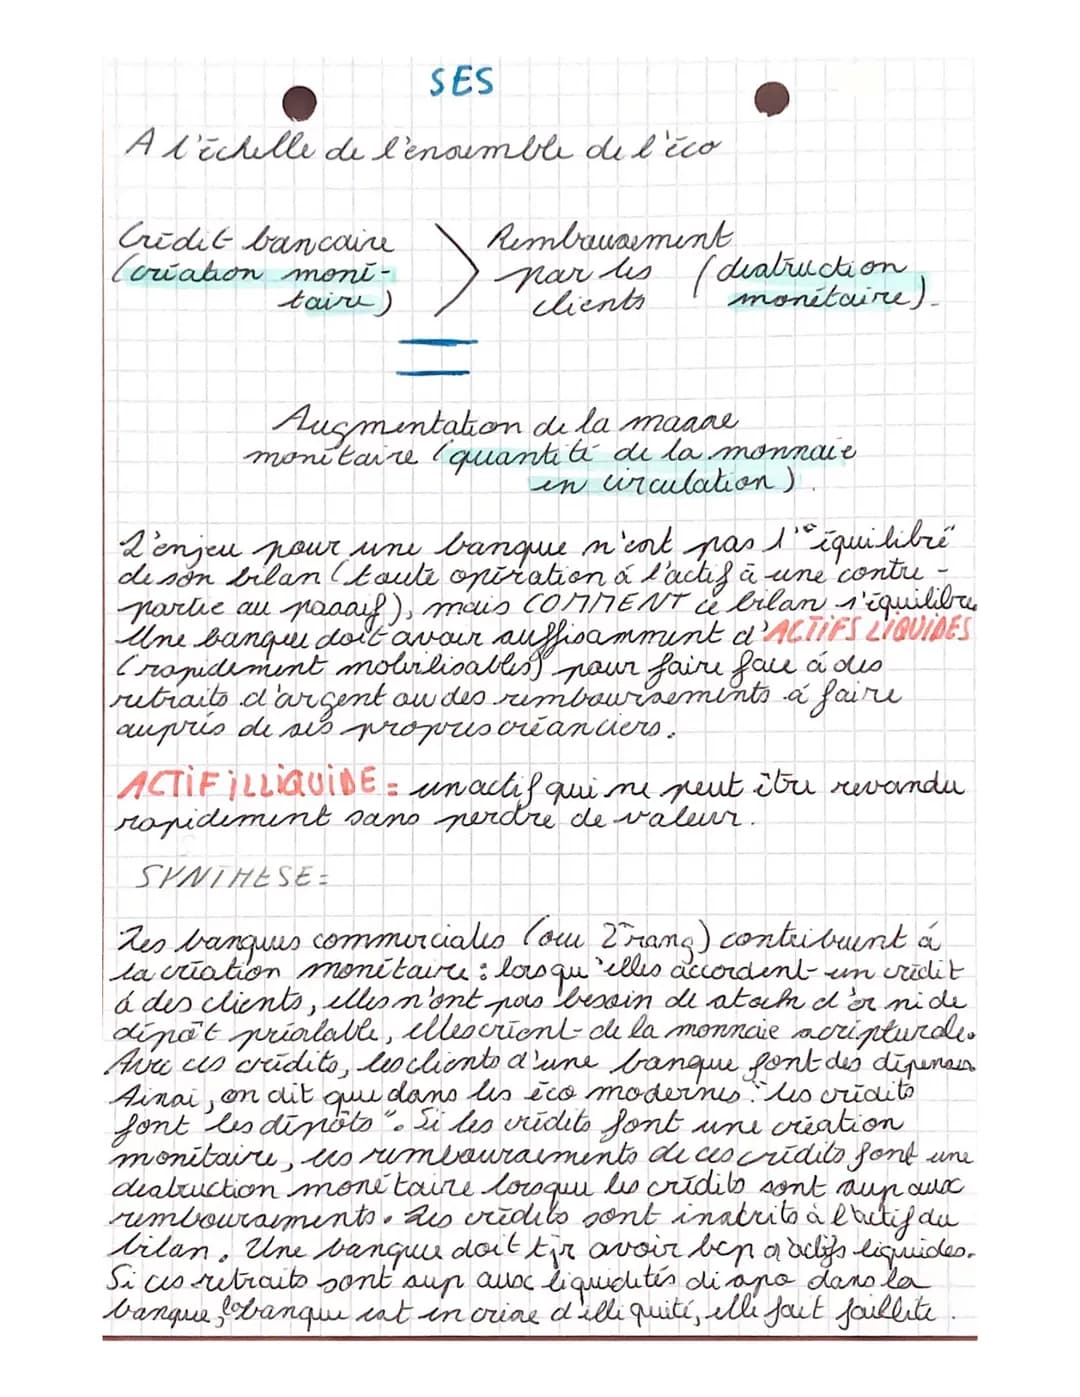 SES
A l'échelle de l'ensemble de l'éco
Crédit bancaire > Remboursement
(création moné- par les (destruction
taire) clients monétaire).
=
Augmentation de la masse
monétaire (quantité de la monnaie
en circulation).
L'enjeu pour une banque n'est pas l'"équilibré"
de son bilan (toute opération à l'actif à une contre-
partie au passif), mais COMMENT ce bilan s'équilibre.
Une banque doit avoir suffisamment d'ACTIFS LIQUIDES
(rapidement mobilisables) pour faire face à des
retraits d'argent ou des remboursements à faire
auprès de ses propres créanciers.
ACTIF iLLiQUiDE = un actif qui ne peut être revandu
rapidement sans perdre de valeur.
SYNTHESE =
Les banques commerciales (ou 2e rang) contribuent à
la création monétaire : lorsqu'elles accordent un crédit
à des clients, elles n'ont pas besoin de stock d'or ni de
dépôt préalable, elles créent de la monnaie scripturale.
Avec ces crédits, les clients d'une banque font des dépenses.
Ainsi, on dit que dans les éco modernes : "les crédits
font les dépôts". Si les crédits font une création
monétaire, les remboursements de ces crédits font une
destruction monétaire lorsque les crédits sont sup aux
remboursements. Les crédits sont inscrits à l'actif du
bilan. Une banque doit tjr avoir bcp d'actifs liquides.
Si ces retraits sont sup aux liquidités dispo dans la
banque, la banque est en crise d'illiquité, elle fait faillite.